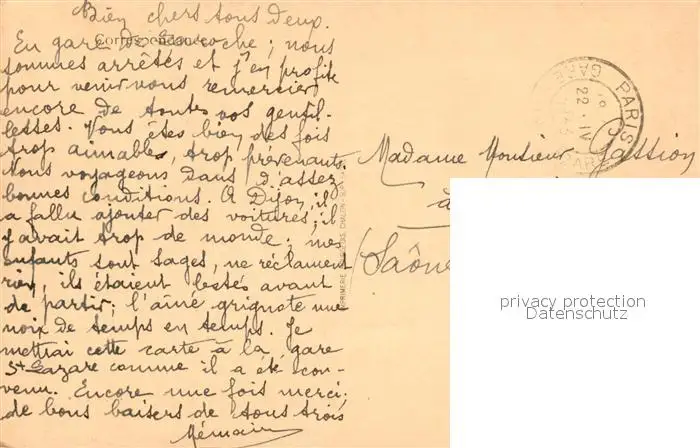 Bien chers tous deux.
Correspondance
En gare de Laroche ; nous
sommes arrêtés et j'en profite
pour venir vous remercier
encore de toutes vos gentil-
lesses. Vous êtes bien des fois
trop aimables, trop prévenants.
Nous voyageons dans d'assez
bonnes conditions. A Dijon, il
a fallu ajouter des voitures ; il
y avait trop de monde ; mes
enfants sont sages, ne réclament
rien, ils étaient lestés avant
de partir ; l'aîné grignote une
noix de temps en temps. Je
mettrai cette carte à la gare
St Lazare comme il a été con-
venu. Encore une fois merci.
de bons baisers de tous trois
PARIS
GARE
22 · IV
Madame Monsieur Gassion
à
(Saône
IMPRIMERIE
CHALON-S-
privacy protection
Datenschutz